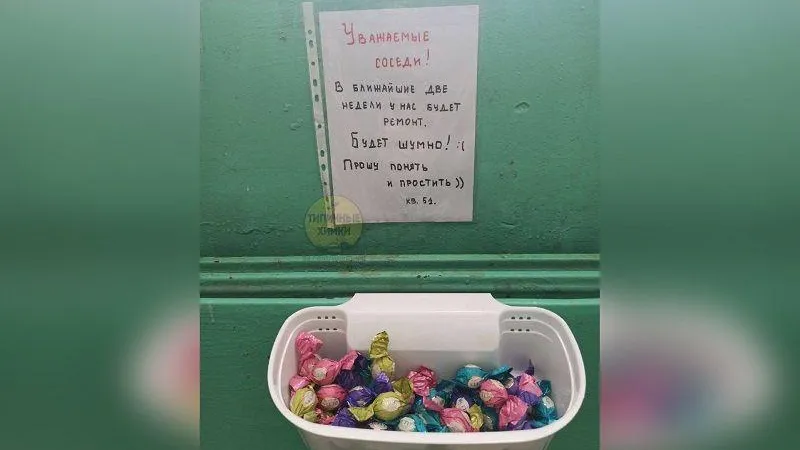 Уважаемые
соседи!
В ближайшие две
недели у нас будет
ремонт.
Будет шумно! :(
Прошу понять
и простить))
кв. 51.
ТИПИЧНЫЕ
ХИМКИ